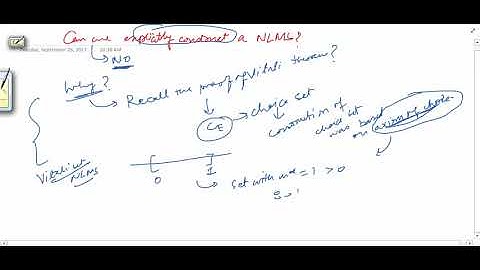 Can we explicitly construct a NLMS?
Tuesday, September 26, 2017
10:36 AM
NO
Why?
Recall the proof of Vitali theorem?
CE
choice set
construction of
choice set
was based
on axiom of choice
Vitali set
NLMS
0
1
set with m* = 1 > 0